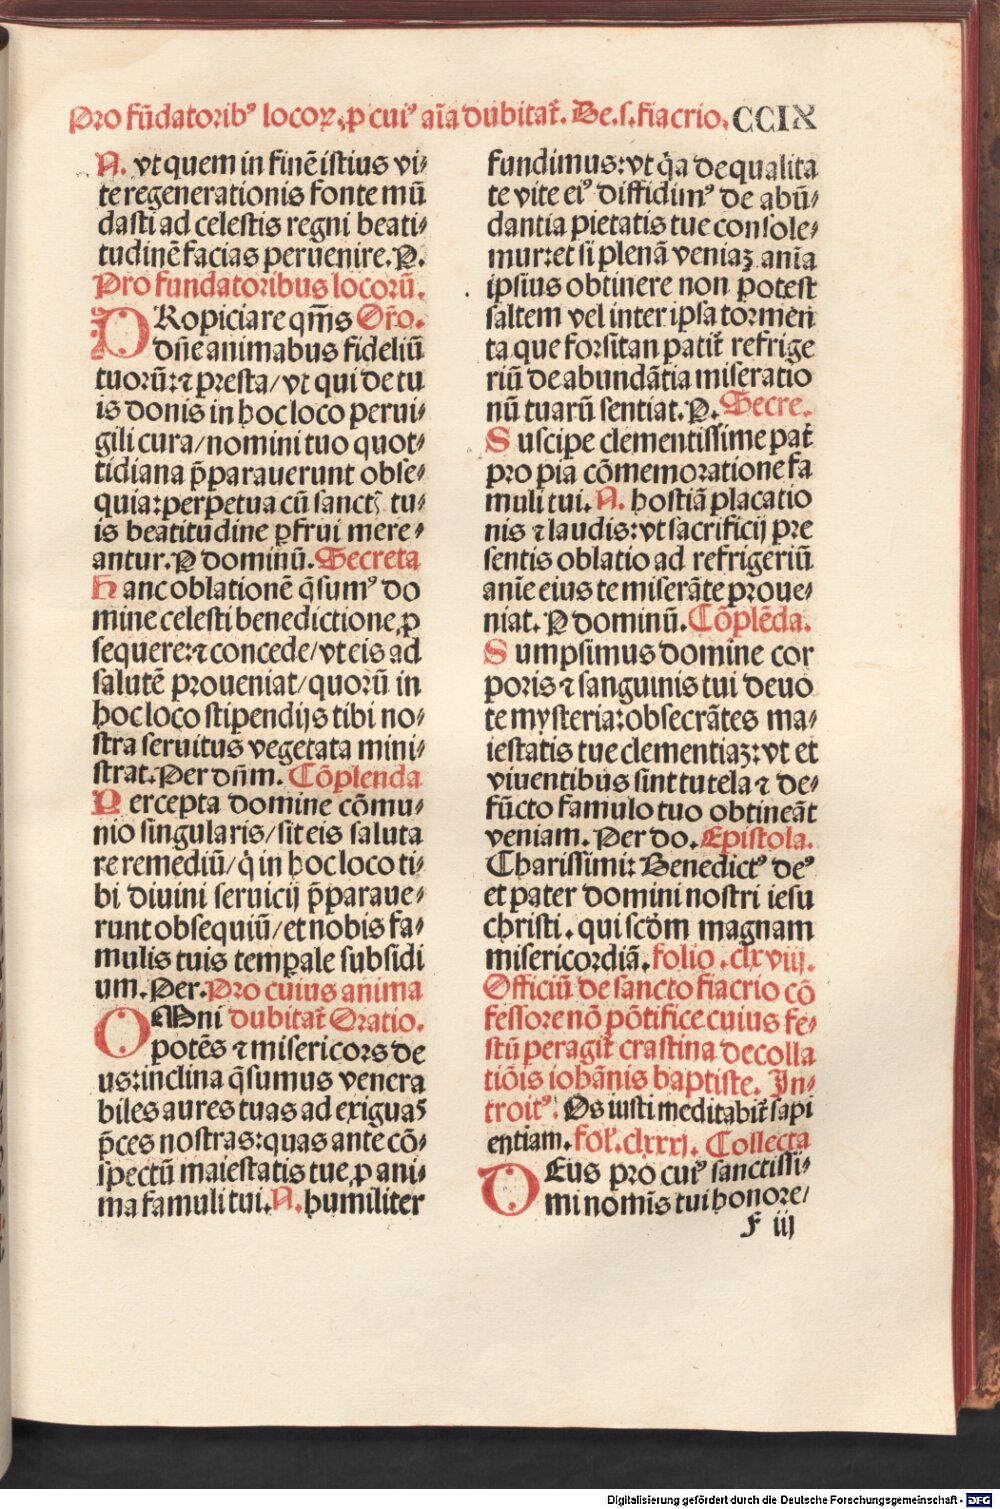 Pro fūdatoribꝰ locoꝝ. ꝓ cuiꝰ aīa dubitat᷑. De. s. fiacrio. CCIX
N. vt quem in finē istius vi⸗
te regenerationis fonte mū
dasti ad celestis regni beati⸗
tudinē facias peruenire. P.
Pro fundatoribus locorū.
PRopiciare qm̄s Or̄o.
dn̄e animabus fideliū
tuorū: ⁊ p̄sta/ vt qui de tu
is donis in hoc loco perui⸗
gili cura/ nomini tuo quot⸗
tidiana p̄parauerunt obse⸗
quia: perpetua cū sanctꝭ tu⸗
is beatitudine ꝑfrui mere⸗
antur. P dominū. Secreta
Hanc oblationē q̄sumꝰ do
mine celesti benedictione ꝓ
sequere: ⁊ concede/ vt eis ad
salutē proueniat/ quorū in
hoc loco stipendijs tibi no⸗
stra seruitus vegetata mini⸗
strat. Per dn̄m. Cōplenda
Percepta domine cōmu⸗
nio singularis/ sit eis saluta
re remediū/ q̄ in hoc loco ti⸗
bi diuini seruicij p̄paraue⸗
runt obsequiū/ et nobis fa⸗
mulis tuis temꝑale subsidi
um. Per. Pro cuius anima
OMni dubitat᷑ Oratio.
potēs ⁊ misericors de
us: inclina q̄sumus venera
biles aures tuas ad exiguas
p̄ces nostras: quas ante cō⸗
spectū maiestatis tue, ꝓ ani⸗
ma famuli tui. N. humiliter
fundimus: vt q̄a de qualita
te vite eiꝰ diffidimꝰ de abū⸗
dantia pietatis tue console⸗
mur: et si plenā veniaꝫ anīa
ipsius obtinere non potest
saltem vel inter ipsa tormen
ta que forsitan patit᷑ refrige
riū de abundātia miseratio
nū tuarū sentiat. P. Secre.
Suscipe clementissime pat᷑
pro pia cōmemoratione fa
muli tui. N. hostiā placatio
nis ⁊ laudis: vt sacrificij pre
sentis oblatio ad refrigeriū
anīe eius te miserāte ꝓroue⸗
niat. P dominū. Cōplēda.
Sumpsimus domine cor
poris ⁊ sanguinis tui deuo
te mysteria: obsecrātes ma⸗
iestatis tue clementiaꝫ: vt et
viuentibus sint tutela ⁊ de⸗
fūcto famulo tuo obtineāt
veniam. Per do. Epistola.
Charissimi: Benedictꝰ deꝰ
et pater domini nostri iesu
christi. qui scd̄m magnam
misericordiā. folio. clxviij.
Officiū de sancto fiacrio cō
fessore nō pōtifice cuius fe⸗
stū peragit᷑ crastina decolla
tiōis iohānis baptiste. In⸗
troitꝰ. Os iusti meditabit᷑ sapi
entiam. fol'. clxxxj. Collecta
DEus pro cuiꝰ sanctissi⸗
mi nomīs tui honore/
F iij
Digitalisierung gefördert durch die Deutsche Forschungsgemeinschaft - DFG